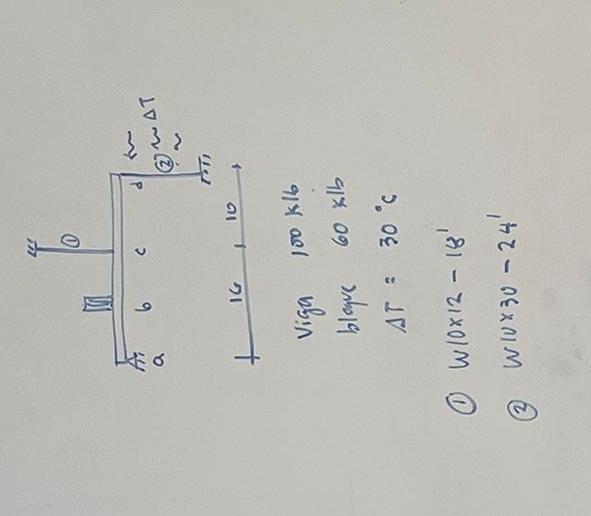 ①
② ΔT
a b c d
16 10
Viga 100 klb
bloque 60 klb
ΔT = 30 °C
① W10x12 - 18'
② W10x30 - 24'